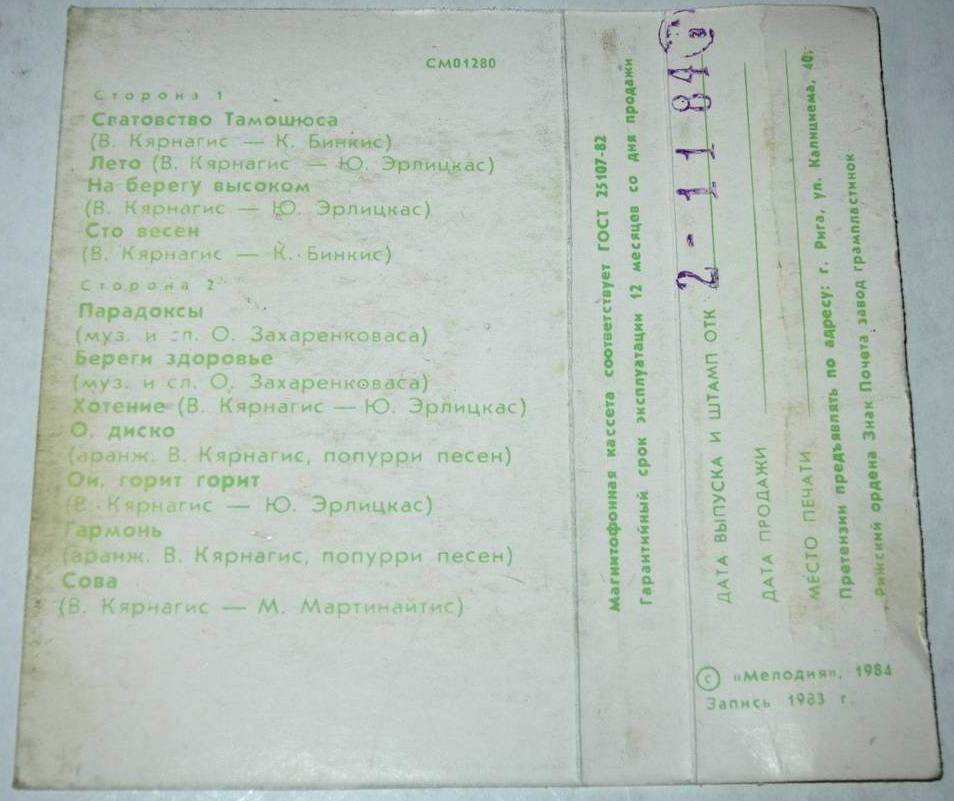 СМ01280
Сторона 1
Сватовство Тамошюса
(В. Кярнагис — К. Бинкис)
Лето (В. Кярнагис — Ю. Эрлицкас)
На берегу высоком
(В. Кярнагис — Ю. Эрлицкас)
Сто весен
(В. Кярнагис — К. Бинкис)
Сторона 2
Парадоксы
(муз. и сл. О. Захаренковаса)
Береги здоровье
(муз. и сл. О. Захаренковаса)
Хотение (В. Кярнагис — Ю. Эрлицкас)
О, диско
(аранж. В. Кярнагис, попурри песен)
Ой, горит горит
(В. Кярнагис — Ю. Эрлицкас)
Гармонь
(аранж. В. Кярнагис, попурри песен)
Сова
(В. Кярнагис — М. Мартинайтис)
Магнитофонная кассета соответствует ГОСТ 25107-82
Гарантийный срок эксплуатации 12 месяцев со дня продажи
ДАТА ВЫПУСКА И ШТАМП ОТК 2 - 11 84
ДАТА ПРОДАЖИ
МЕСТО ПЕЧАТИ
Претензии предъявлять по адресу: г. Рига, ул. Калнциема, 40,
Рижский ордена Знак Почета завод грампластинок
© «Мелодия», 1984
Запись 1983 г.